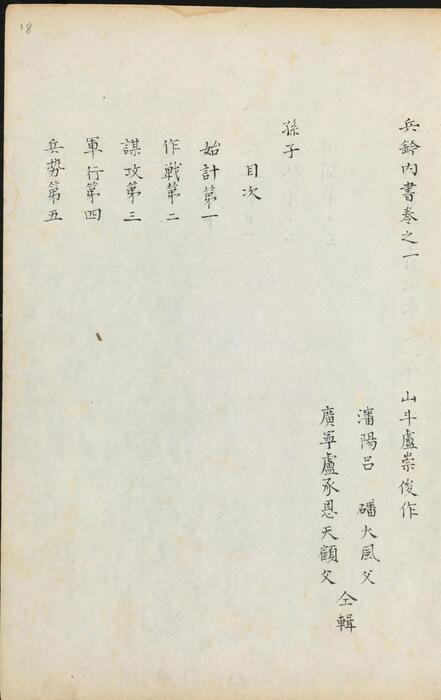 兵鈐内書卷之一 山斗盧崇俊作
瀋陽呂 磻大風父
廣寧盧承恩天顧父
仝輯
孫子
目次
始計第一
作戰第二
謀攻第三
軍行第四
兵勢第五
18